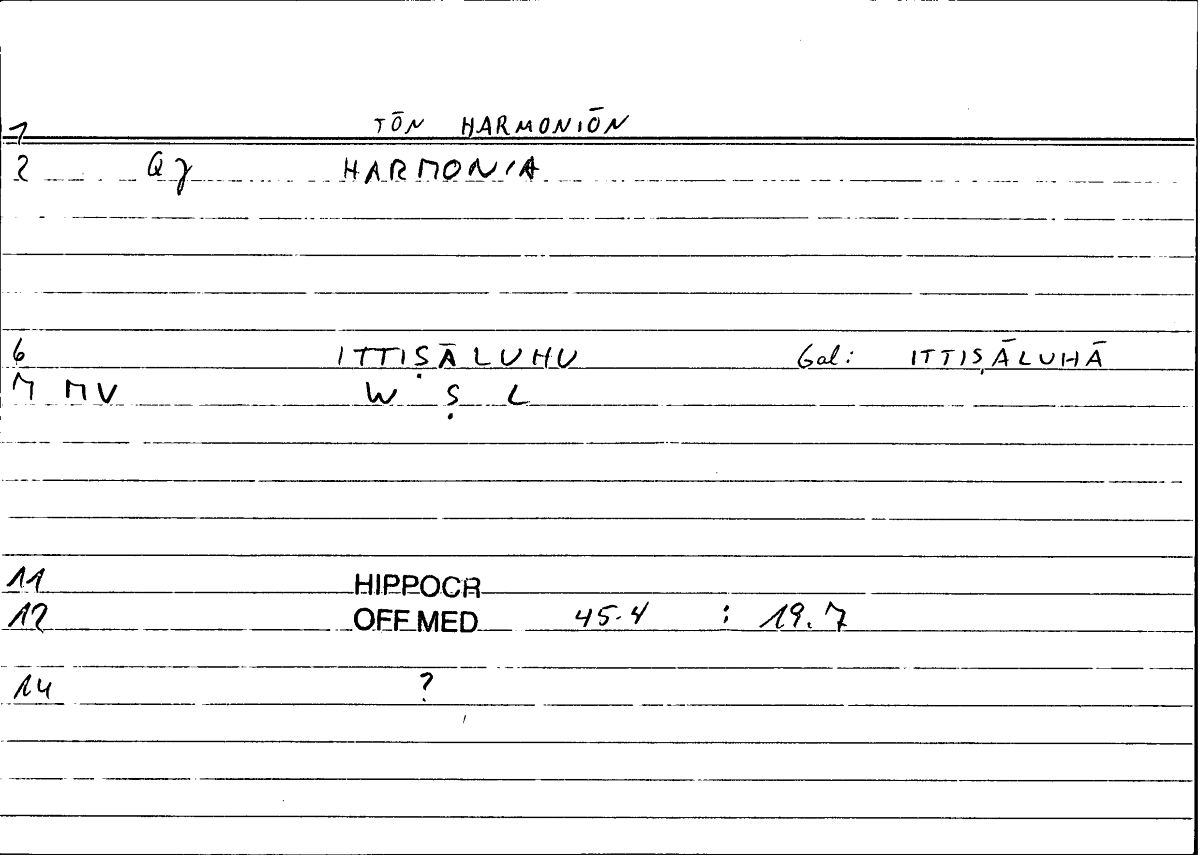 1 TŌN HARMONIŌN
2 Qγ HARMONIA
6 ITTIṢĀLUHU Gal: ITTIṢĀLUHĀ
7 MV W Ṣ L
11 HIPPOCR
12 OFF MED 45.4 : 19.7
14 ?